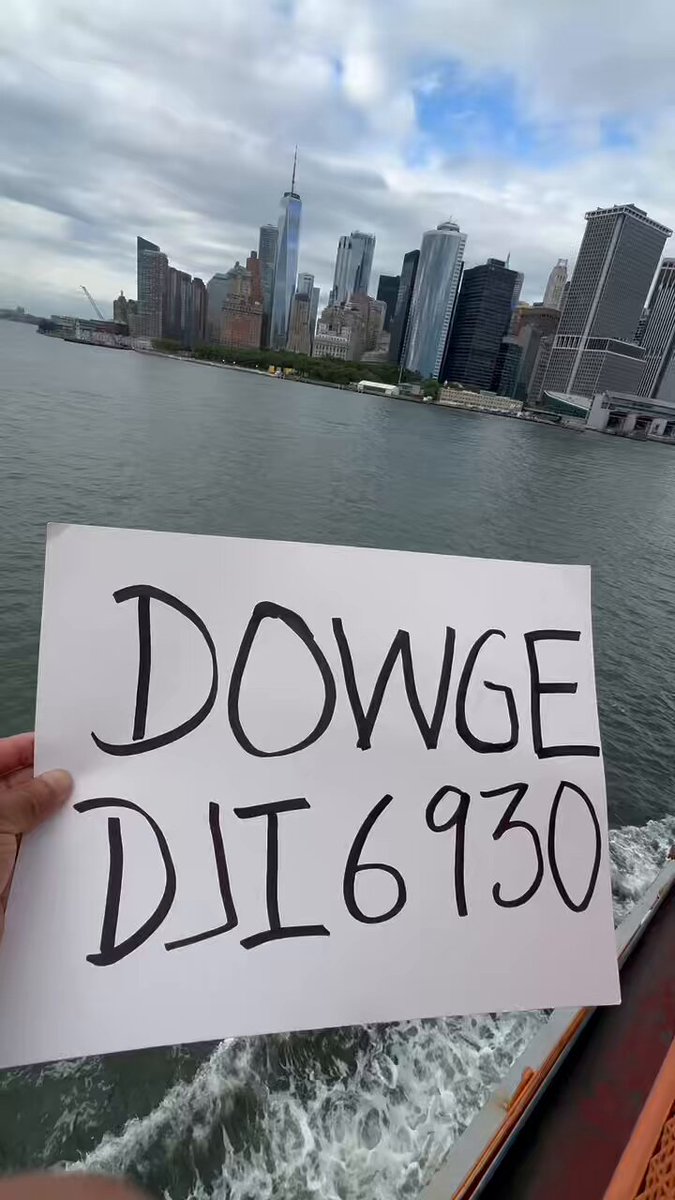 DOWGE
DJI6930